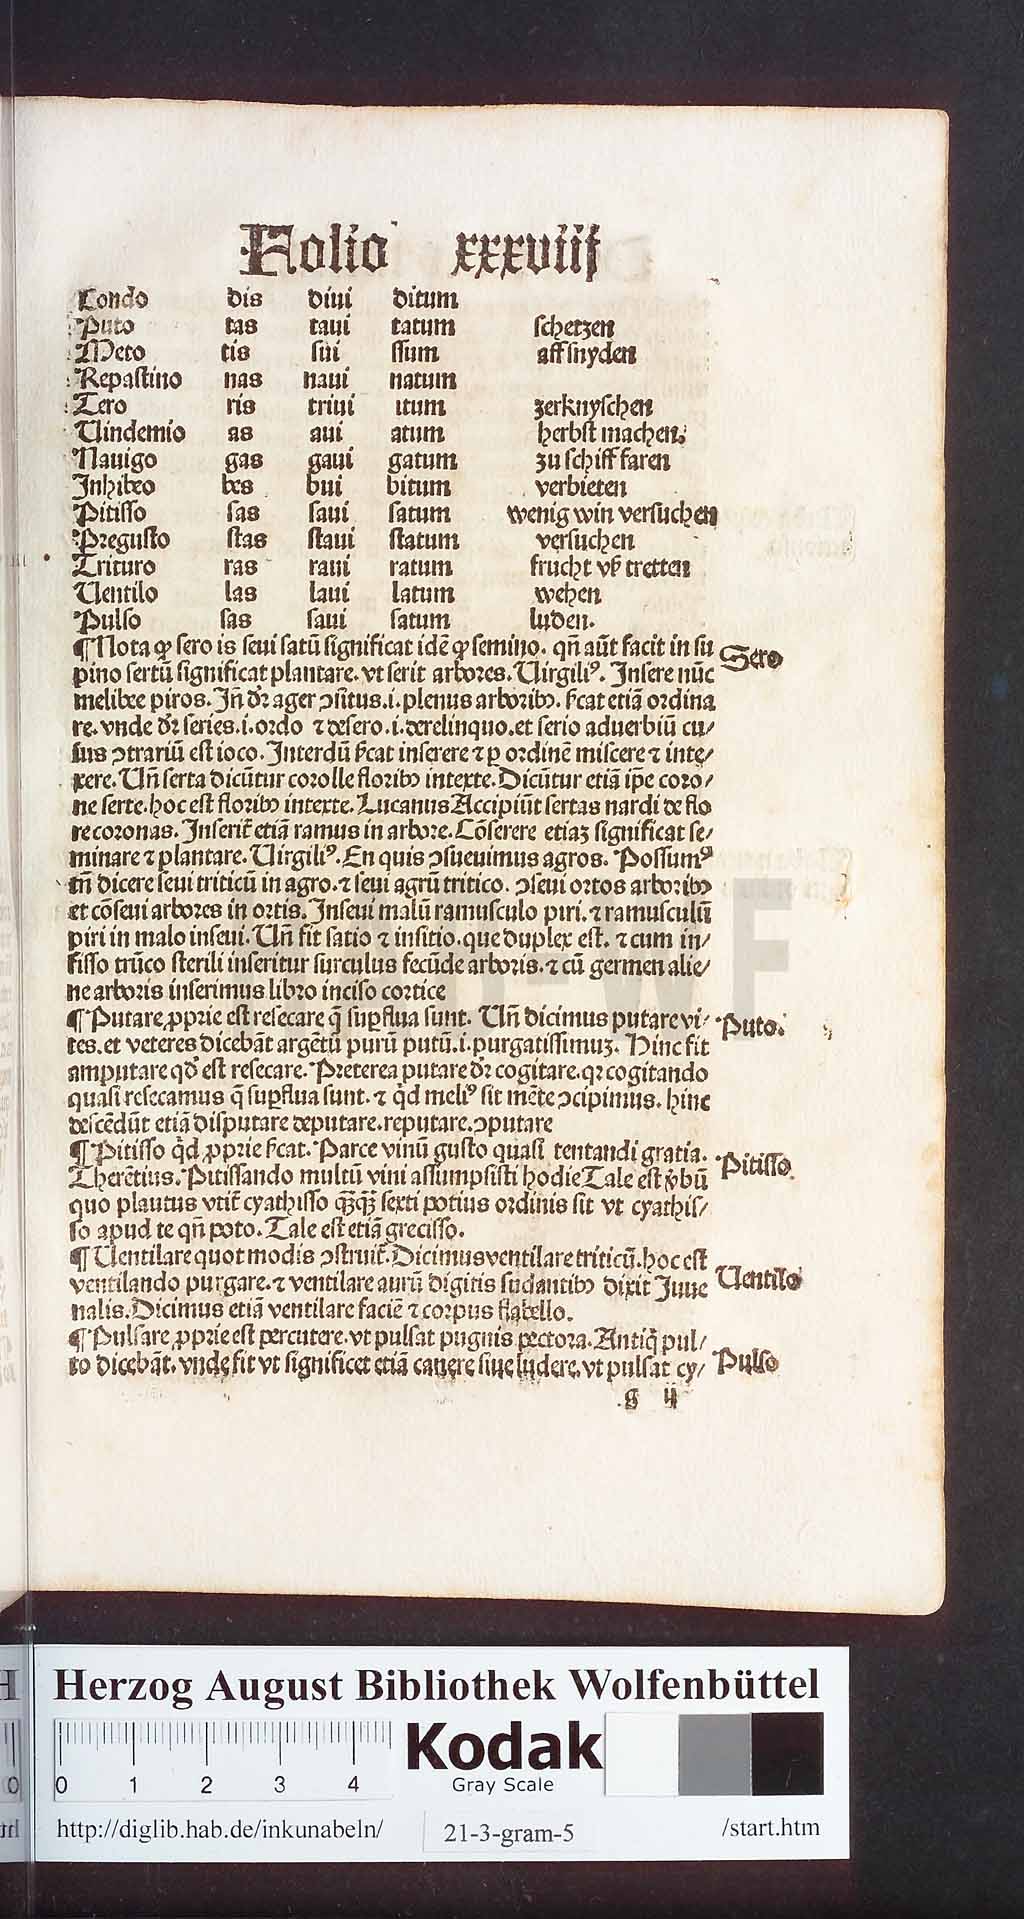 Folio xxxviij
Condo dis didi ditum
Puto tas taui tatum schetzen
Meto tis sui ssum affsnyden
Repastino nas naui natum
Tero ris triui itum zerknyschen
Uindemio as aui atum herbst machen.
Nauigo gas gaui gatum zu schiff faren
Inhibeo bes bui bitum verbieten
Pitisso sas saui satum wenig win versuchen
Pregusto stas staui statum versuchen
Trituro ras raui ratum frucht vß tretten
Uentilo las laui latum wehen
Pulso sas saui satum luden.
¶ Nota ꝙ sero is seui satū significat idē ꝙ semino. qñ aūt facit in su Sero
pino sertū significat plantare. vt serit arbores. Uirgiliꝰ. Insere nūc
melibee piros. Iñ dr̄ ager ↄsitus .i. plenus arboribꝫ. sificat etiā ordina
re. vnde dr̄ series .i. ordo ⁊ desero .i. derelinquo. et serio aduerbiū cu/
ius ↄtrariū est ioco. Interdū sificat inserere ⁊ ꝑ ordinē miscere ⁊ inte/
xere. Uñ serta dicūtur corolle floribꝫ intexte. Dicūtur etiā ip̄e coro/
ne serte. hoc est floribꝫ intexte. Lucanus Accipiūt sertas nardi de flo
re coronas. Inserit̄ etiā ramus in arbore. Cōserere etiaꝫ significat se/
minare ⁊ plantare. Uirgiliꝰ. En quis ↄsueuimus agros. Possumꝰ
tñ dicere seui triticū in agro. ⁊ seui agrū tritico. ↄseui ortos arboribꝫ
et cōseui arbores in ortis. Inseui malū ramusculo piri. ⁊ ramusculū
piri in malo inseui. Uñ fit satio ⁊ insitio. que duplex est. ⁊ cum in/
fisso trūco sterili inseritur surculus fecūde arboris. ⁊ cū germen alie/
ne arboris inserimus libro inciso cortice
¶ Putare ꝓprie est resecare q̄ suꝑflua sunt. Uñ dicimus putare vi/ Puto.
tes. et veteres dicebāt argētū purū putū .i. purgatissimuꝫ. Hinc fit
amputare qd̓ est resecare. Preterea putare dr̄ cogitare. qꝛ cogitando
quasi resecamus q̄ suꝑflua sunt. ⁊ qd̓ meliꝰ sit mēte ↄcipimus. hinc
descēdūt etiā disputare deputare. reputare. ↄputare
¶ Pitisso qd̓ ꝓprie sificat. Parce vinū gusto quasi tentandi gratia. Pitisso.
Therētius. Pitissando multū vini assumpsisti hodie Tale est v̓bū
quo plautus vtit̄ cyathisso qꝫqꝫ sexti potius ordinis sit vt cyathis/
so apud te qñ poto. Tale est etiā grecisso.
¶ Uentilare quot modis ↄstruit̄. Dicimus ventilare triticū. hoc est Uentilo
ventilando purgare. ⁊ ventilare aurū digitis sudantibꝫ dixit Juue
nalis. Dicimus etiā ventilare faciē ⁊ corpus flabello.
¶ Pulsare ꝓprie est percutere. vt pulsat pugnis pectora. Antiq̄ pul/ Pulso
to dicebāt. vnde fit vt significet etiā canere siue ludere. vt pulsat cy/
g ij
Herzog August Bibliothek Wolfenbüttel
0 1 2 3 4
Kodak
Gray Scale
http://diglib.hab.de/inkunabeln/ 21-3-gram-5 /start.htm